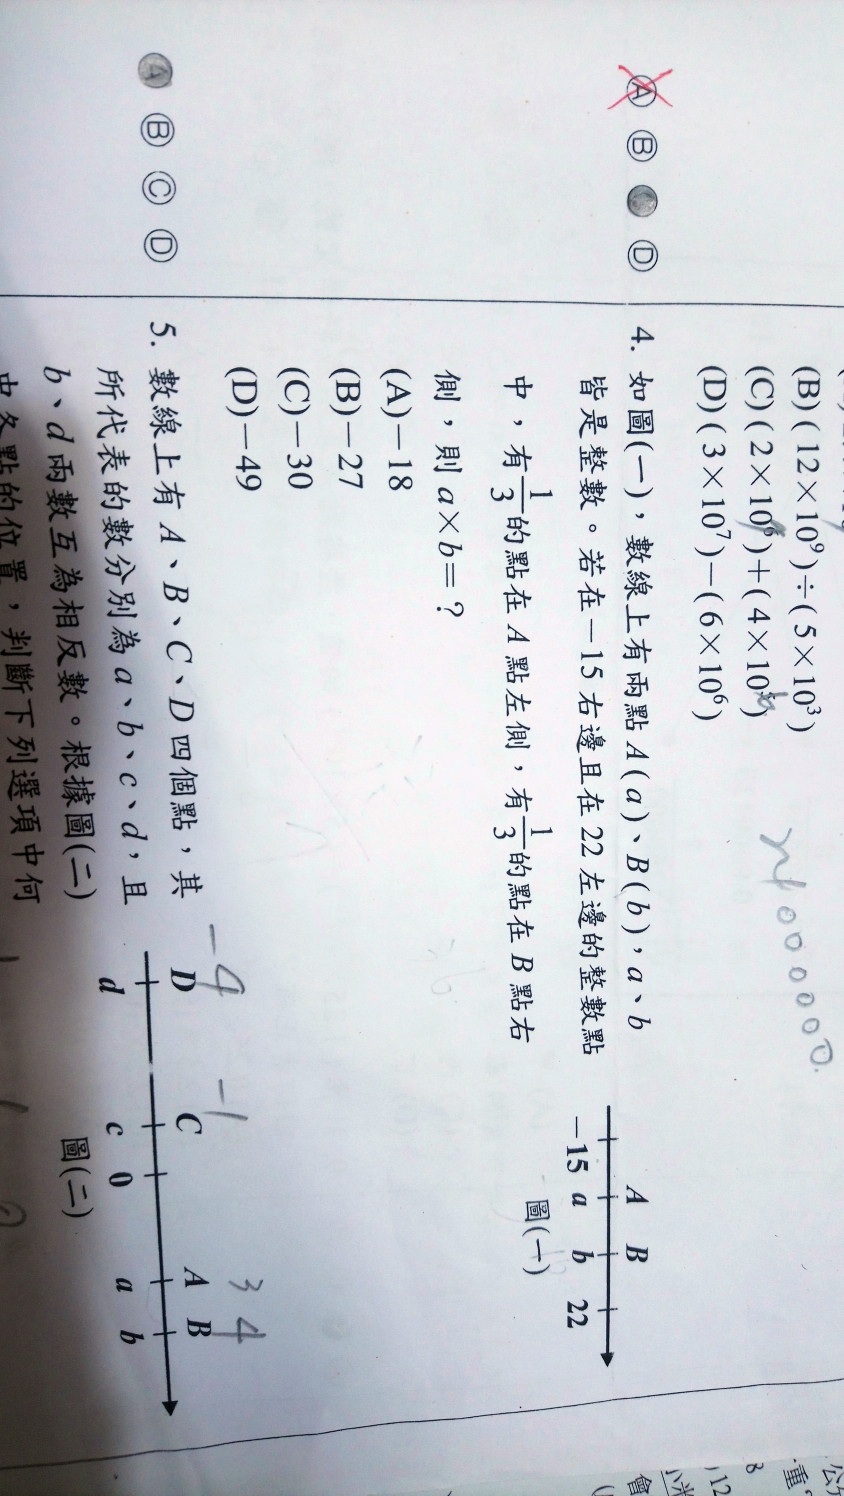 (B) ( 12×10⁹ )÷( 5×10³ )
(C) ( 2×10⁶ )+( 4×10 )
(D) ( 3×10⁷ )-( 6×10⁶ )
000000.
Ⓐ Ⓑ Ⓓ
4. 如圖(一)，數線上有兩點 A(a)、B(b)，a、b
皆是整數。若在-15 右邊且在 22 左邊的整數點
中，有1/3的點在 A 點左側，有1/3的點在 B 點右
側，則 a×b=？
A B
-15 a b 22
圖(一)
(A)-18
(B)-27
(C)-30
(D)-49
Ⓐ Ⓑ Ⓒ Ⓓ
5. 數線上有 A、B、C、D 四個點，其
所代表的數分別為 a、b、c、d，且
b、d 兩數互為相反數。根據圖(二)
中各點的位置，判斷下列選項中何
-4 -1 3 4
D C A B
d c 0 a b
圖(二)
重
12
會